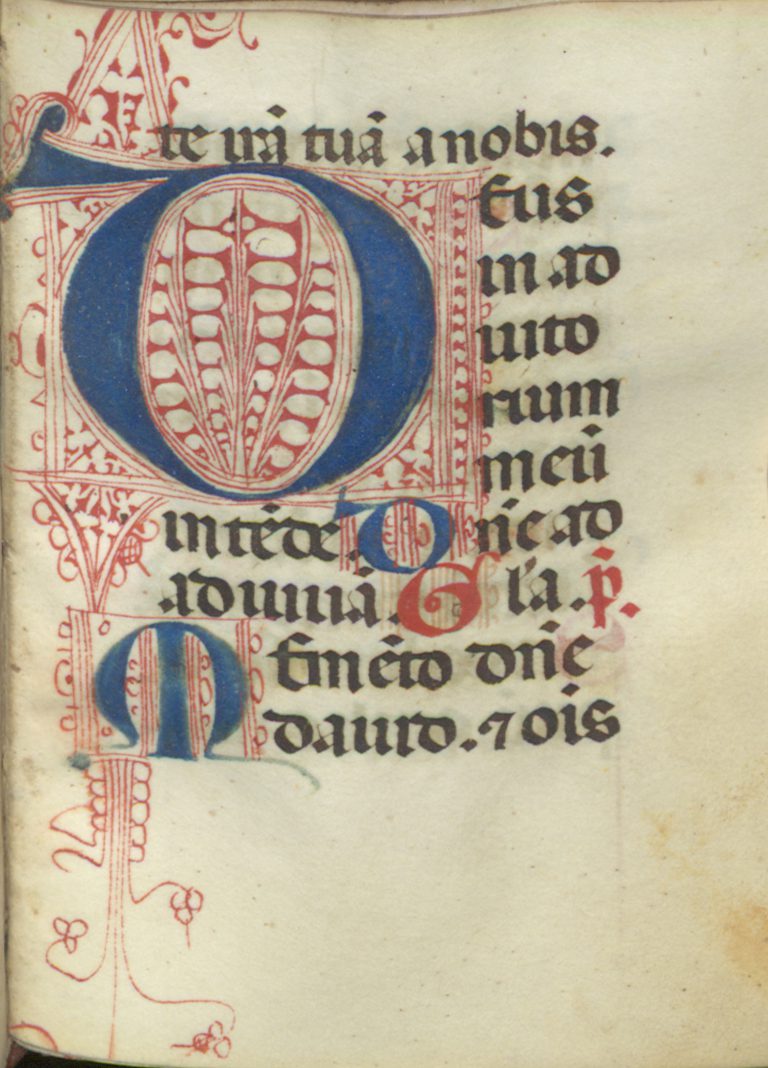 te irā tuā a nobis.
Deus
in ad
iuto
rium
meū
intēde. Dn̄e ad
adiuuā. Gl'a. p̄.
Memēto dn̄e
dauid. ⁊ oīs